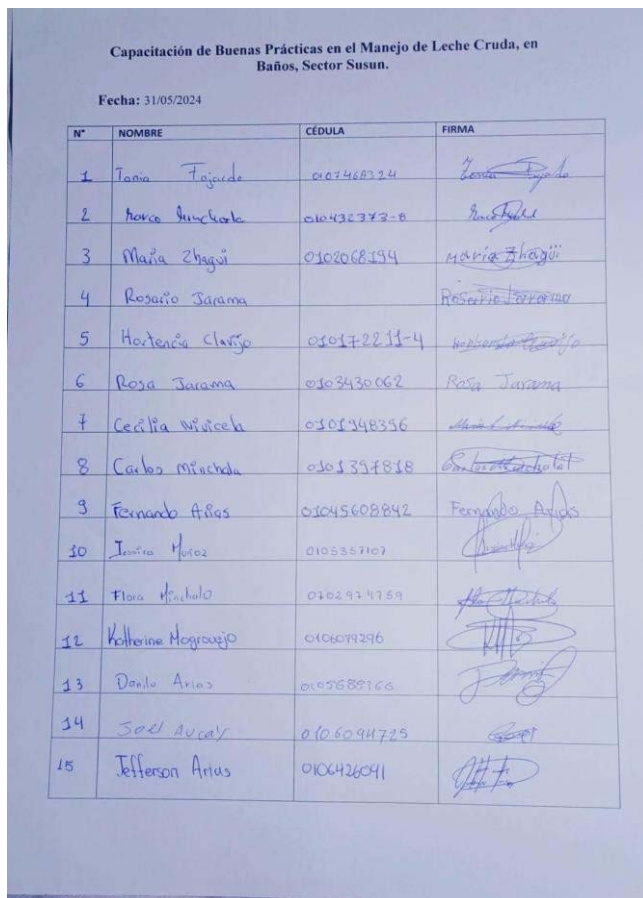 Capacitación de Buenas Prácticas en el Manejo de Leche Cruda, en
Baños, Sector Susun.
Fecha: 31/05/2024
N° NOMBRE CÉDULA FIRMA
1 Tania Fajardo 0107468324
2 Marco Minchala 010432373-8
3 María Zhagui 0102068194 María Zhagüi
4 Rosario Jarama Rosario Jarama
5 Hortencia Clavijo 010172211-4
6 Rosa Jarama 0103430062 Rosa Jarama
7 Cecilia Nivicela 0101948396
8 Carlos Minchala 0101397818
9 Fernando Arias 01045608842 Fernando Arias
10 Jessica Muñoz 0105357107
11 Flora Minchala
12 Katherine Mogrovejo 0106079296
13 Danilo Arias
14 Joel Aucay 0106094725
15 Jefferson Arias 0106426041